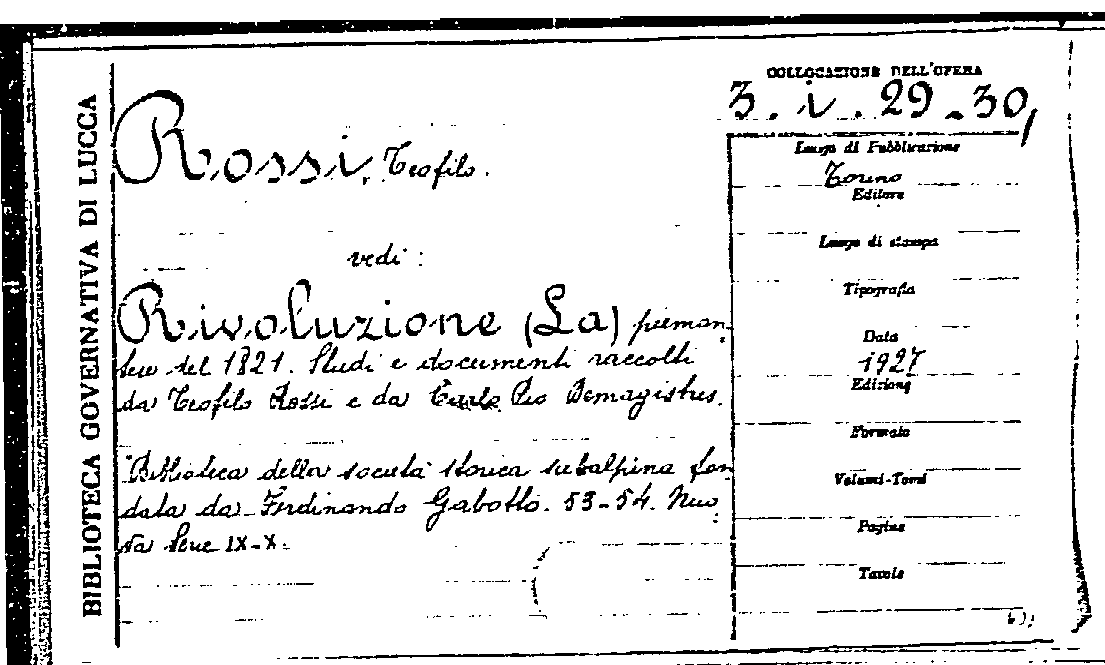 BIBLIOTECA GOVERNATIVA DI LUCCA
COLLOCAZIONE DELL'OPERA
3. i. 29-30,
Rossi, Teofilo.
vedi:
Rivoluzione (La) piemon-
tese del 1821. Studi e documenti raccolti
da Teofilo Rossi e da Carlo Pio Demagistris.
Biblioteca della società storica subalpina fon
data da Ferdinando Gabotto. 53-54. Nuo
va Serie IX-X.
Luogo di Pubblicazione
Torino
Editore
Luogo di stampa
Tipografia
Data
1927
Edizione
Formato
Volumi-Tomi
Pagine
Tavole